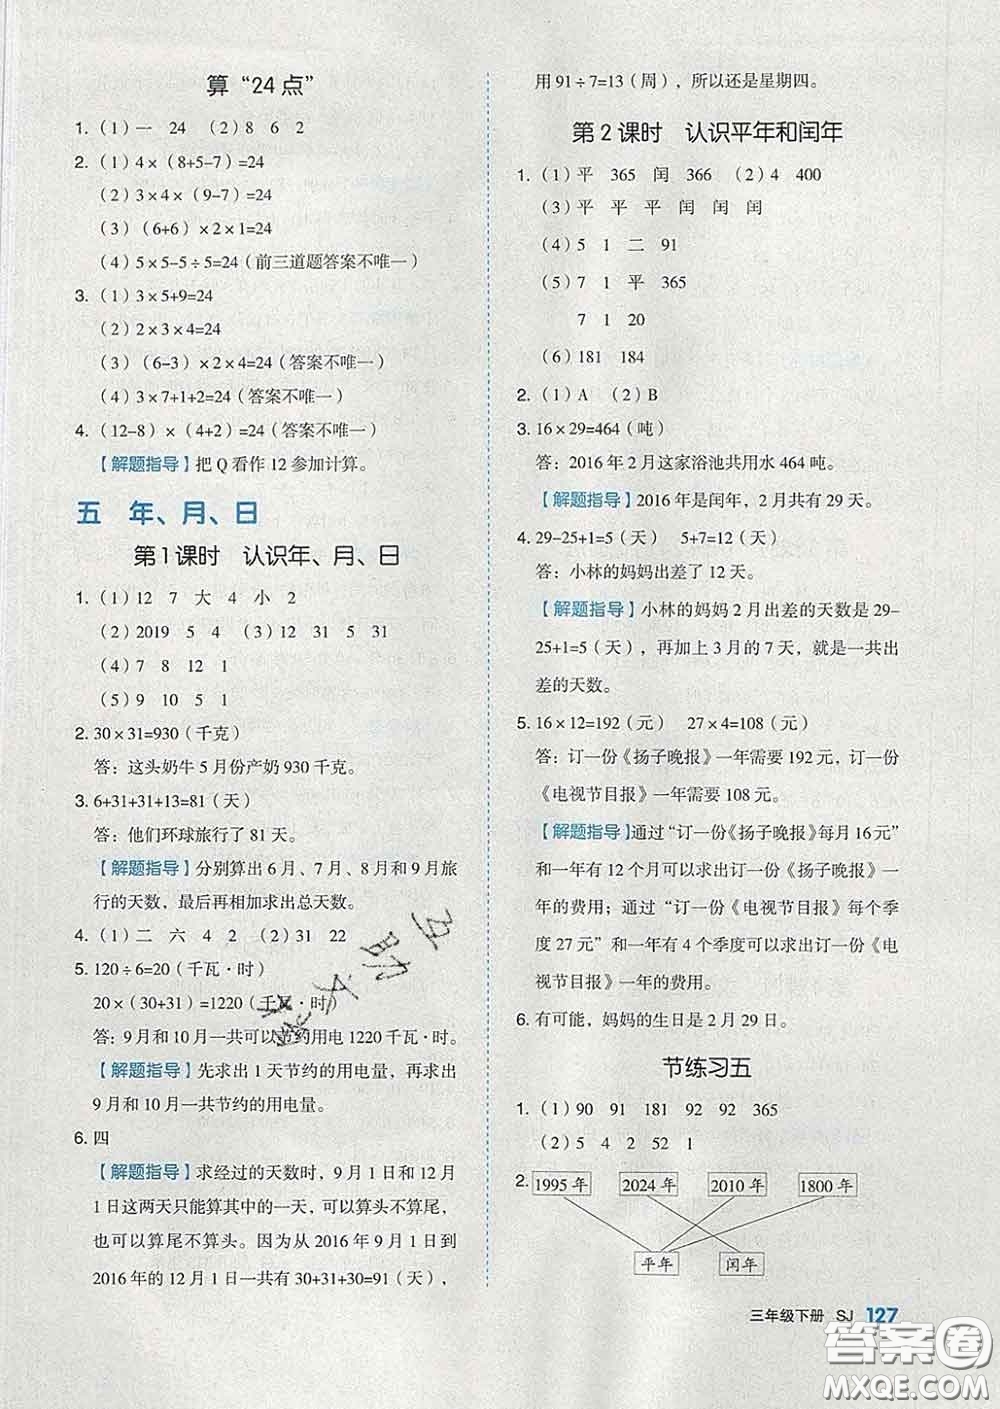 算“24点”
1. （1）一 24 （2）8 6 2
2. （1）4×（8+5-7）=24
（2）3×4×（9-7）=24
（3）（6+6）×2×1=24
（4）5×5-5÷5=24（前三道题答案不唯一）
3. （1）3×5+9=24
（2）2×3×4=24
（3）（6-3）×2×4=24（答案不唯一）
（4）3×7+1+2=24（答案不唯一）
4. （12-8）×（4+2）=24（答案不唯一）
【解题指导】把Q看作12参加计算。
五 年、月、日
第1课时 认识年、月、日
1. （1）12 7 大 4 小 2
（2）2019 5 4 （3）12 31 5 31
（4）7 8 12 1
（5）9 10 5 1
2. 30×31=930（千克）
答：这头奶牛5月份产奶930千克。
3. 6+31+31+13=81（天）
答：他们环球旅行了81天。
【解题指导】分别算出6月、7月、8月和9月旅
行的天数，最后再相加求出总天数。
4. （1）二 六 4 2 （2）31 22
5. 120÷6=20（千瓦·时）
20×（30+31）=1220（千瓦·时）
答：9月和10月一共可以节约用电1220千瓦·时。
【解题指导】先求出1天节约的用电量，再求出
9月和10月一共节约的用电量。
6. 四
【解题指导】求经过的天数时，9月1日和12月
1日这两天只能算其中的一天，可以算头不算尾，
也可以算尾不算头。因为从2016年9月1日到
2016年的12月1日一共有30+31+30=91（天），
用91÷7=13（周），所以还是星期四。
第2课时 认识平年和闰年
1. （1）平 365 闰 366 （2）4 400
（3）平 平 平 闰 闰 闰
（4）5 1 二 91
（5）7 1 平 365
7 1 20
（6）181 184
2. （1）A （2）B
3. 16×29=464（吨）
答：2016年2月这家浴池共用水464吨。
【解题指导】2016年是闰年，2月共有29天。
4. 29-25+1=5（天） 5+7=12（天）
答：小林的妈妈出差了12天。
【解题指导】小林的妈妈2月出差的天数是29-
25+1=5（天），再加上3月的7天，就是一共出
差的天数。
5. 16×12=192（元） 27×4=108（元）
答：订一份《扬子晚报》一年需要192元，订一份
《电视节目报》一年需要108元。
【解题指导】通过“订一份《扬子晚报》每月16元”
和一年有12个月可以求出订一份《扬子晚报》一
年的费用；通过“订一份《电视节目报》每个季
度27元”和一年有4个季度可以求出订一份《电
视节目报》一年的费用。
6. 有可能，妈妈的生日是2月29日。
节练习五
1. （1）90 91 181 92 92 365
（2）5 4 2 52 1
2. 1995年 2024年 2010年 1800年
平年 闰年
三年级下册 SJ 127
答案圈
MXQE.COM